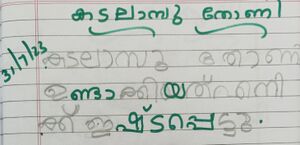 കടലാസു തോണി
31/7/23
കടലാസു തോണി
ഉണ്ടാക്കിയത് എനി
ക്ക് ഇഷ്ടപ്പെട്ടു.